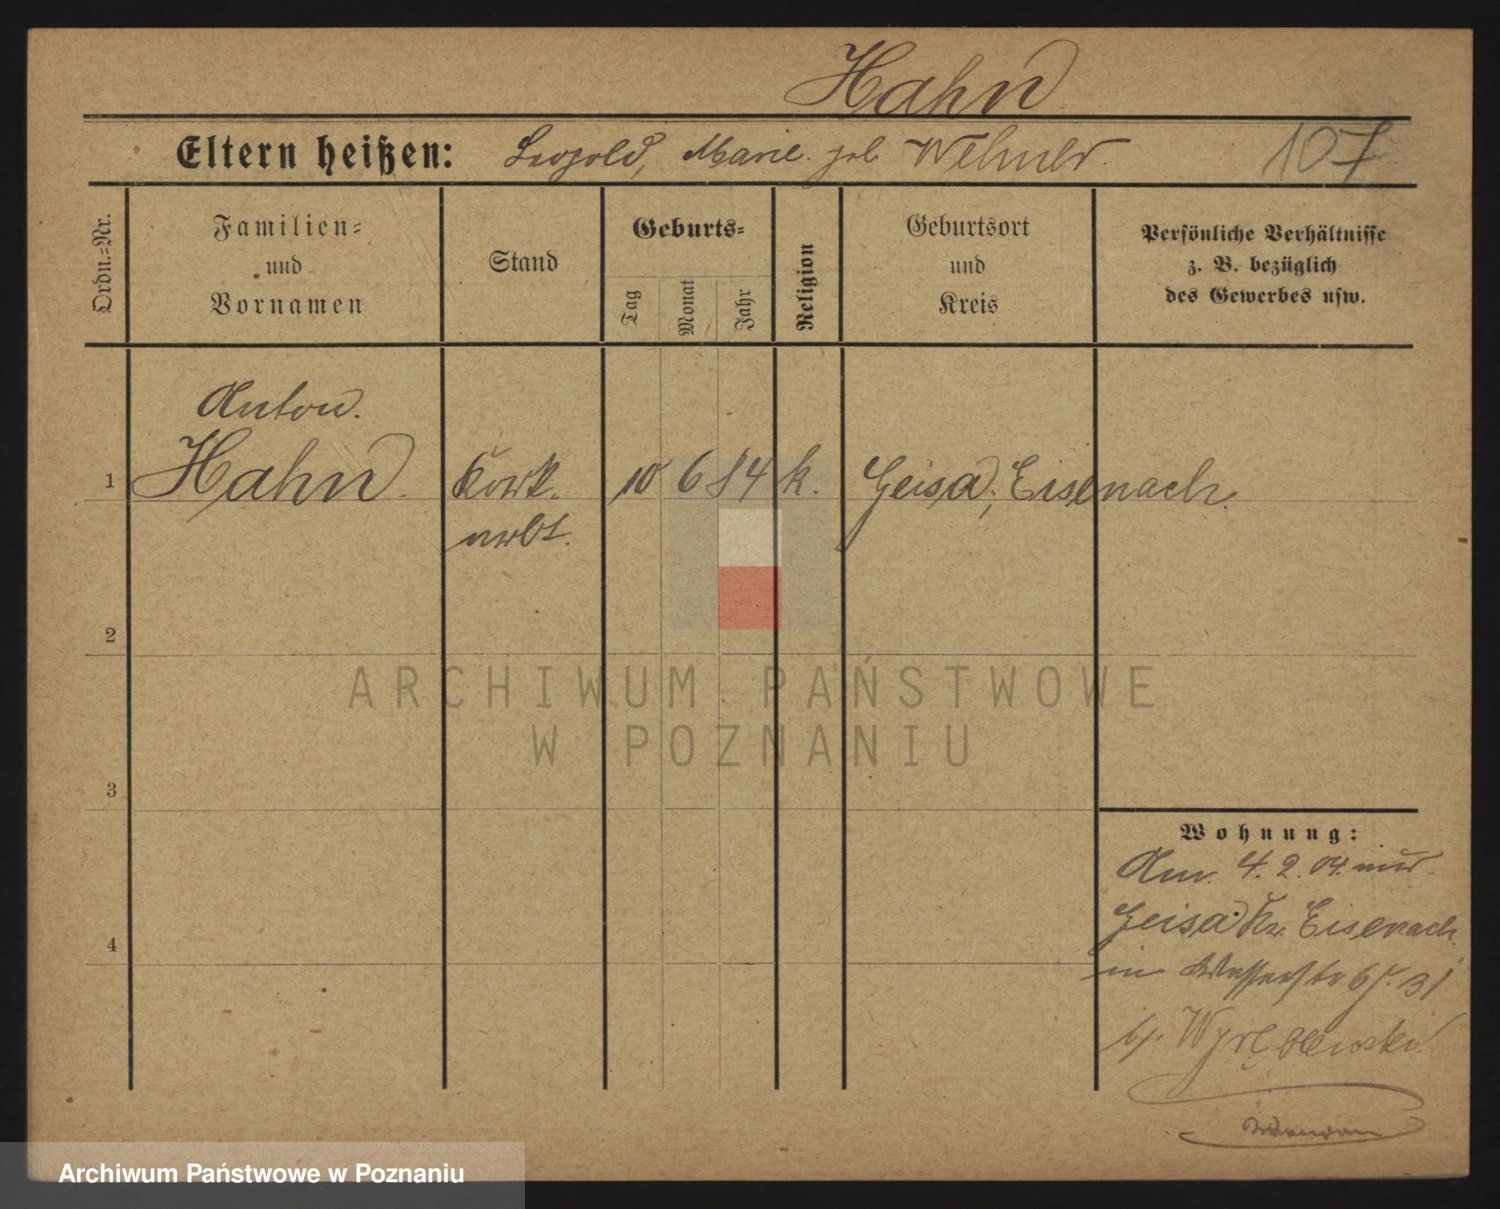 Hahn
107
Eltern heißen: Leopold, Marie geb. Wehner.
Ordn.-Nr.
Familien-
und
Vornamen
Stand
Geburts-
Tag
Monat
Jahr
Religion
Geburtsort
und
Kreis
Persönliche Verhältnisse
z. B. bezüglich
des Gewerbes usw.
Anton.
1 Hahn Kork- 10 6 84 k. Geisa, Eisenach.
arbt.
2
3
4
Wohnung:
Am 4.2.04. aus
Geisa Kr. Eisenach
in 31
b/.
ARCHIWUM PAŃSTWOWE
W POZNANIU
Archiwum Państwowe w Poznaniu